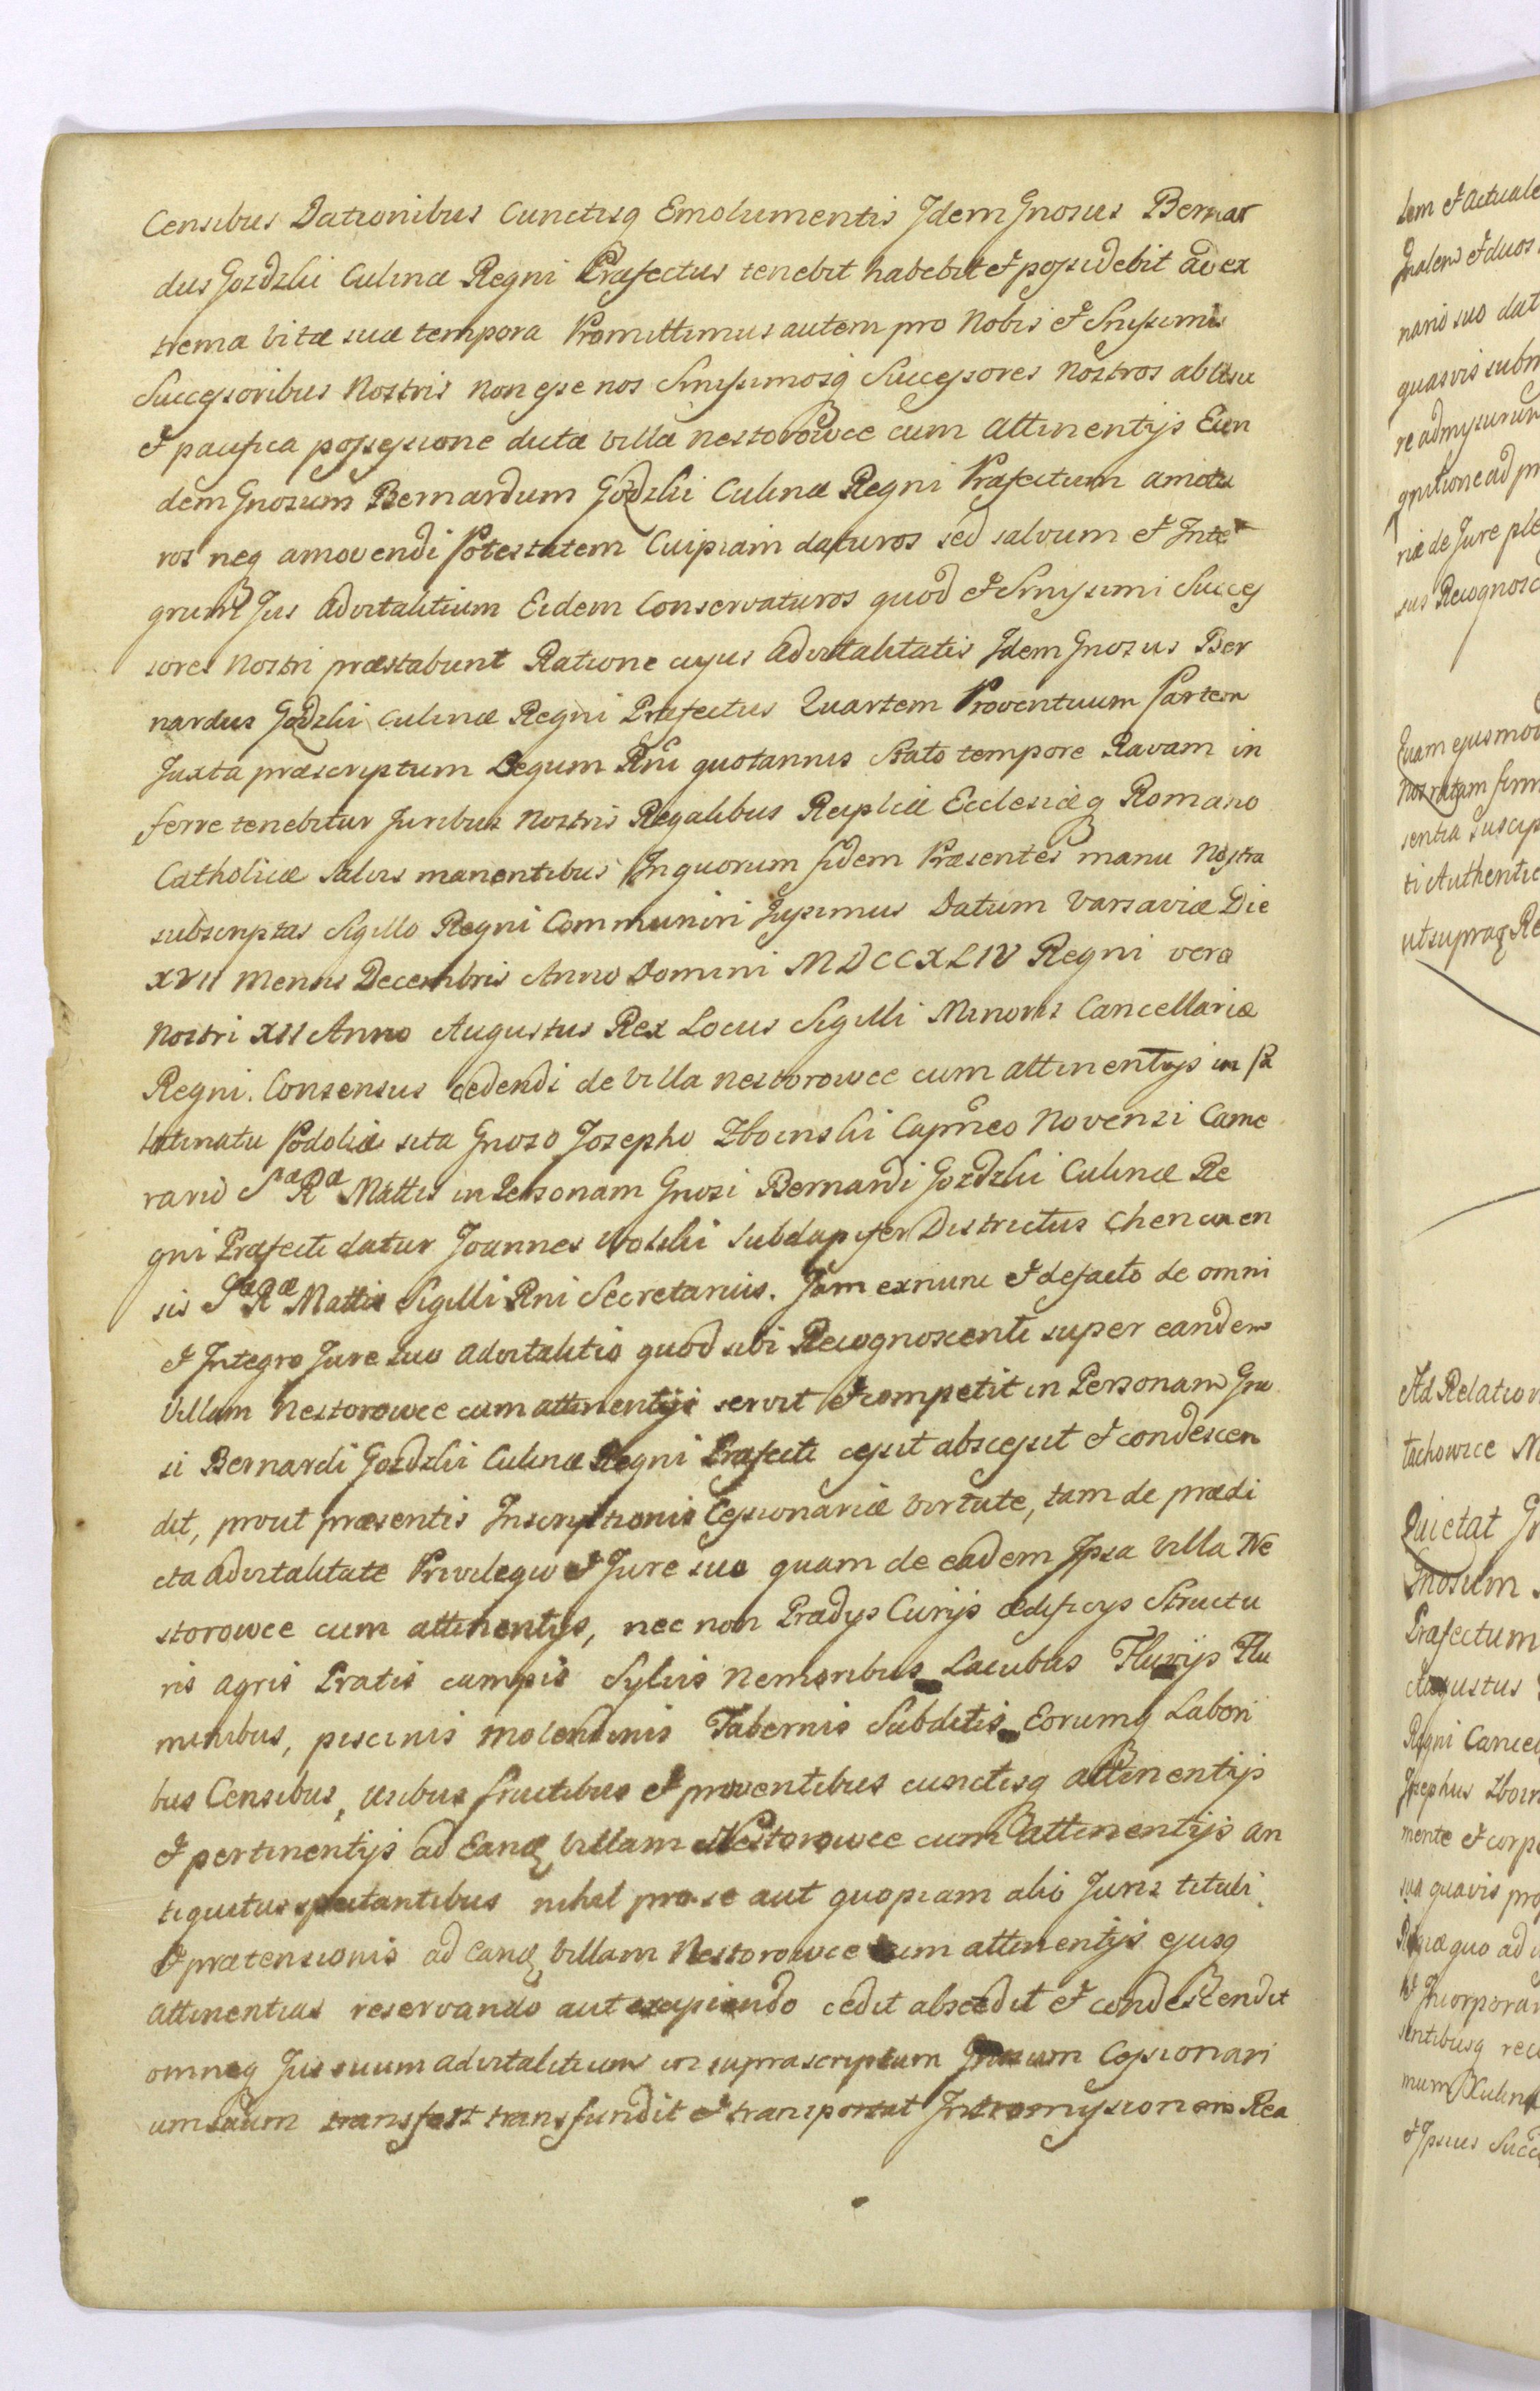 Censibus Dationibus Cunctisq Emolumentis Jdem Gnosus Bernar
dus Gozdzki Culinæ Regni Præfectus tenebit habebit et possidebit ad ex
trema vitæ suæ tempora Promittimus autem pro Nobis et Srnissimis
Successoribus Nostris non esse nos Srnissimosq Successores Nostros ab usu
et pacifica possessione dictæ villæ Nestorowce cum attinentijs Eun
dem Gnosum Bernardum Gozdzki Culinæ Regni Præfectum amotu
ros neq amovendi Potestatem Cuipiam daturos sed salvum et Inte
grum Jus Advitalitium Eidem Conservaturos quod et Srnissimi Succes
sores Nostri præstabunt Ratione cujus Advitalitatis Jdem Gnosus Ber
nardus Gozdzki Culinæ Regni Præfectus Quartem Proventuum Partem
Juxta præscriptum Legum Rni quotannis stato tempore Ravam in
ferre tenebitur Juribus Nostris Regalibus Reiplicæ Ecclesiæq Romano
Catholicæ salvis manentibus In quorum fidem Præsentes manu Nostra
subscriptas Sigillo Regni Communiri Jussimus Datum Varsaviæ Die
XVII Mensis Decembris Anno Domini MDCCXLIV Regni vero
Nostri XII Anno Augustus Rex Locus Sigilli Minoris Cancellariæ
Regni. Consensus cedendi de Villa Nestorowce cum attinentijs in Pa
latinatu Podoliæ sita Gnoso Josepho Zboinski Capneo Novensi Came
rario Sæ Ræ Mattis in Personam Gnosi Bernardi Gozdzki Culinæ Re
gni Præfecti datur Joannes Wolski Subdapifer Districtus Chencinen
sis Sæ Ræ Mattis Sigilli Rni Secretarius. Jam exnunc et defacto de omni
et Integro Jure suo advitalitio quod sibi Recognoscenti super eandem
Villam Nestorowce cum attinentijs servit et competit in Personam Gno
si Bernardi Gozdzki Culinæ Regni Præfecti cessit abscessit et condescen
dit, prout præsentis Inscriptionis Cessionariæ virtute, tam de prædi
cta advitalitate Privilegio et Jure suo quam de eadem Ipsa Villa Ne
storowce cum attinentijs, nec non Prædijs Curijs ædificijs Structu
ris agris Pratis campis Sylvis Nemoribus Lacubus Fluvijs Flu
minibus, piscinis molendinis Tabernis Subditis Eorumq Labori
bus Censibus, usibus fructibus et proventibus cunctisq attinentijs
et pertinentijs ad Eandq Villam Nestorowce cum attinentijs an
tiquitus spectantibus nihil pro se aut quopiam alio Juris tituli
et prætensionis ad eandq Villam Nestorowce cum attinentijs ejusq
attinentias reservando aut excipiendo cedit abscedit et condescendit
omneq Jus suum advitalitium in suprascriptum Gnosum Cessionari
um suum transfert transfundit et transportat Intromissionem Rea